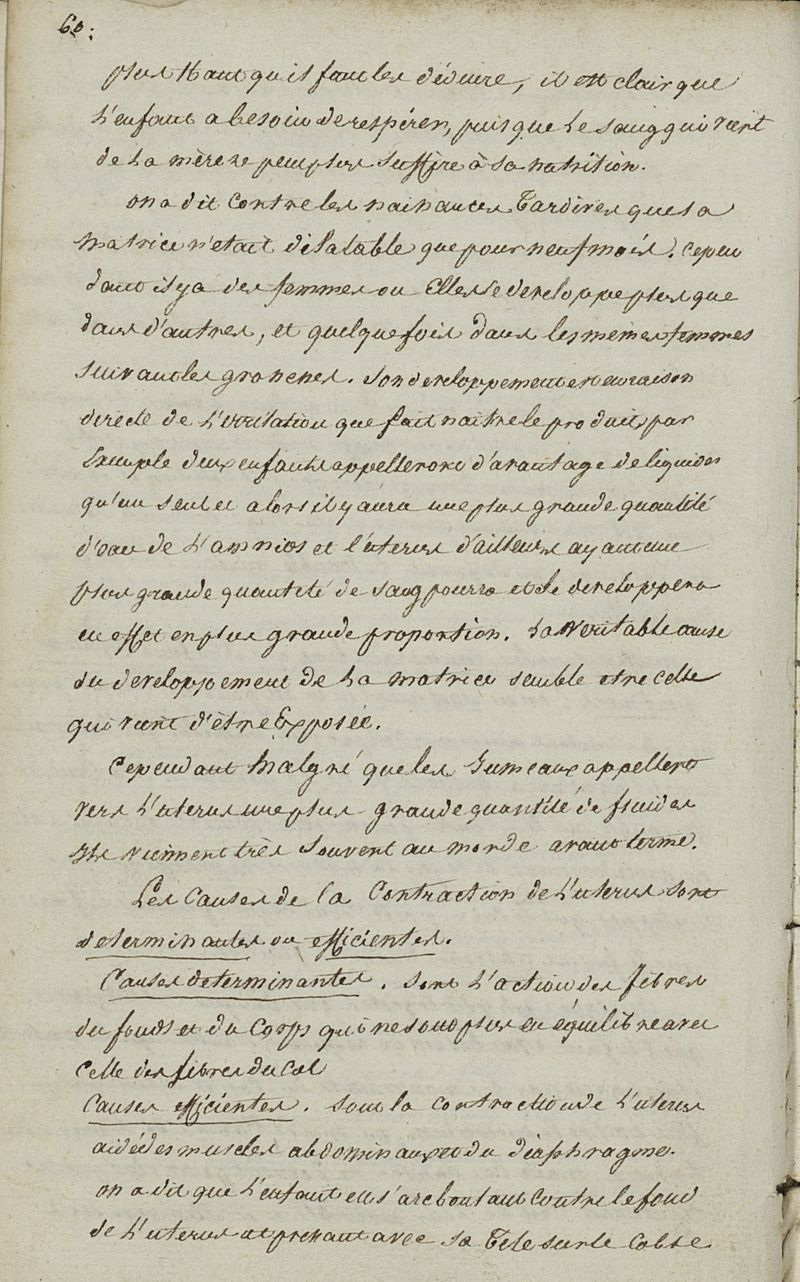 60:
plus Haut qu'il faut les déduire, il est clair que
L'enfant a besoin de respirer, puisque le sang qui vient
de la mère ne peut plus suffire à sa nutrition.
on a dit contre les naisances Tardives que la
Matrice n'etait dilatable que pour neuf mois. cepen
dant il y a des femmes ou Elle se developpe plus que
dans d'autres, et quelque fois dans les memes femmes
suivant les grosesses. son developpement est en raison
directe de L'irritation que fait naitre le produit, par
Exemple deux enfants appelleront d'avantage de liquides
qu'un seul et alors il y aura une plus grande quantité
d'eau de L'amnios et l'uterus d'ailleurs ayant une
plus grande quantité de sang pourra et se developpera
en effet en plus grande proportion. la veritable cause
du developpement de la matrice semble etre celle
qui vient d'être Exposée.
Cependant Malgré que les Jumeaux appellent
vers L'uterus une plus grande quantité de fluides
Ils viennent très souvent au monde avant terme.
Les Causes de la Contraction de L'uterus sont
determinantes ou efficientes.
Causes determinantes. sont L'action des fibres
du fond et du Corps qui ne sont plus en équilibre avec
celle des fibres du Col
Causes efficientes. sont la contraction de L'uterus
aidé des muscles abdominaux et du diaphragme.
on a dit que L'enfant en s'arcboutant contre le fond
de L'uterus et presant avec sa Tete sur le Col se